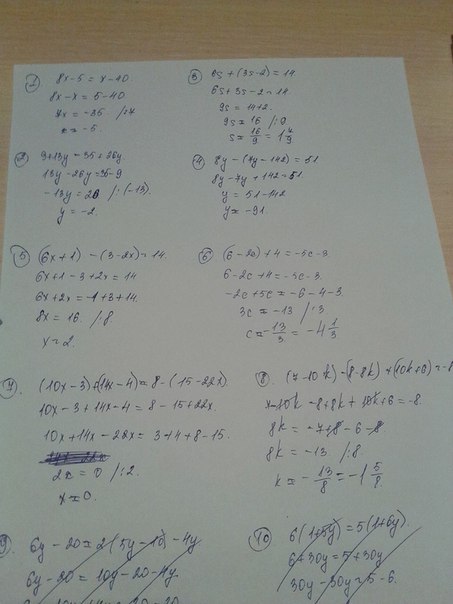 1 8x-5 = x-40.
8x-x = 5-40.
7x = -35 /:7
x = -5.
2 9+13y = 35+26y.
13y-26y = 35-9
-13y = 26 /:(-13).
y = -2
3 6s+(3s-2) = 14
6s+3s-2 = 14.
9s = 14+2.
9s = 16 /:9.
s = 16/9 = 1 7/9
4 8y-(7y-142) = 51.
8y-7y+142 = 51.
y = 51-142
y = -91
5 (6x+1)-(3-2x) = 14.
6x+1-3+2x = 14
6x+2x = -1+3+14.
8x = 16. /:8
x = 2.
6 (6-2c)+4 = -5c-3.
6-2c+4 = -5c-3.
-2c+5c = -6-4-3.
3c = -13 /:3
c = -13/3 = -4 1/3
7. (10x-3)+(14x-4) = 8-(15-22x).
10x-3+14x-4 = 8-15+22x.
10x+14x-22x = 3+4+8-15.
2x = 0 /:2.
x = 0.
8. (7-10k)-(8-8k)+(10k+6) = -8
7-10k-8+8k+10k+6 = -8.
8k = -7+8-6-8
8k = -13 /:8
k = -13/8 = -1 5/8.
9 6y-20 = 2(5y-10)-4y
6y-20 = 10y-20-4y.
10 6(1+5y) = 5(1+6y).
6+30y = 5+30y
30y-30y = 5-6.